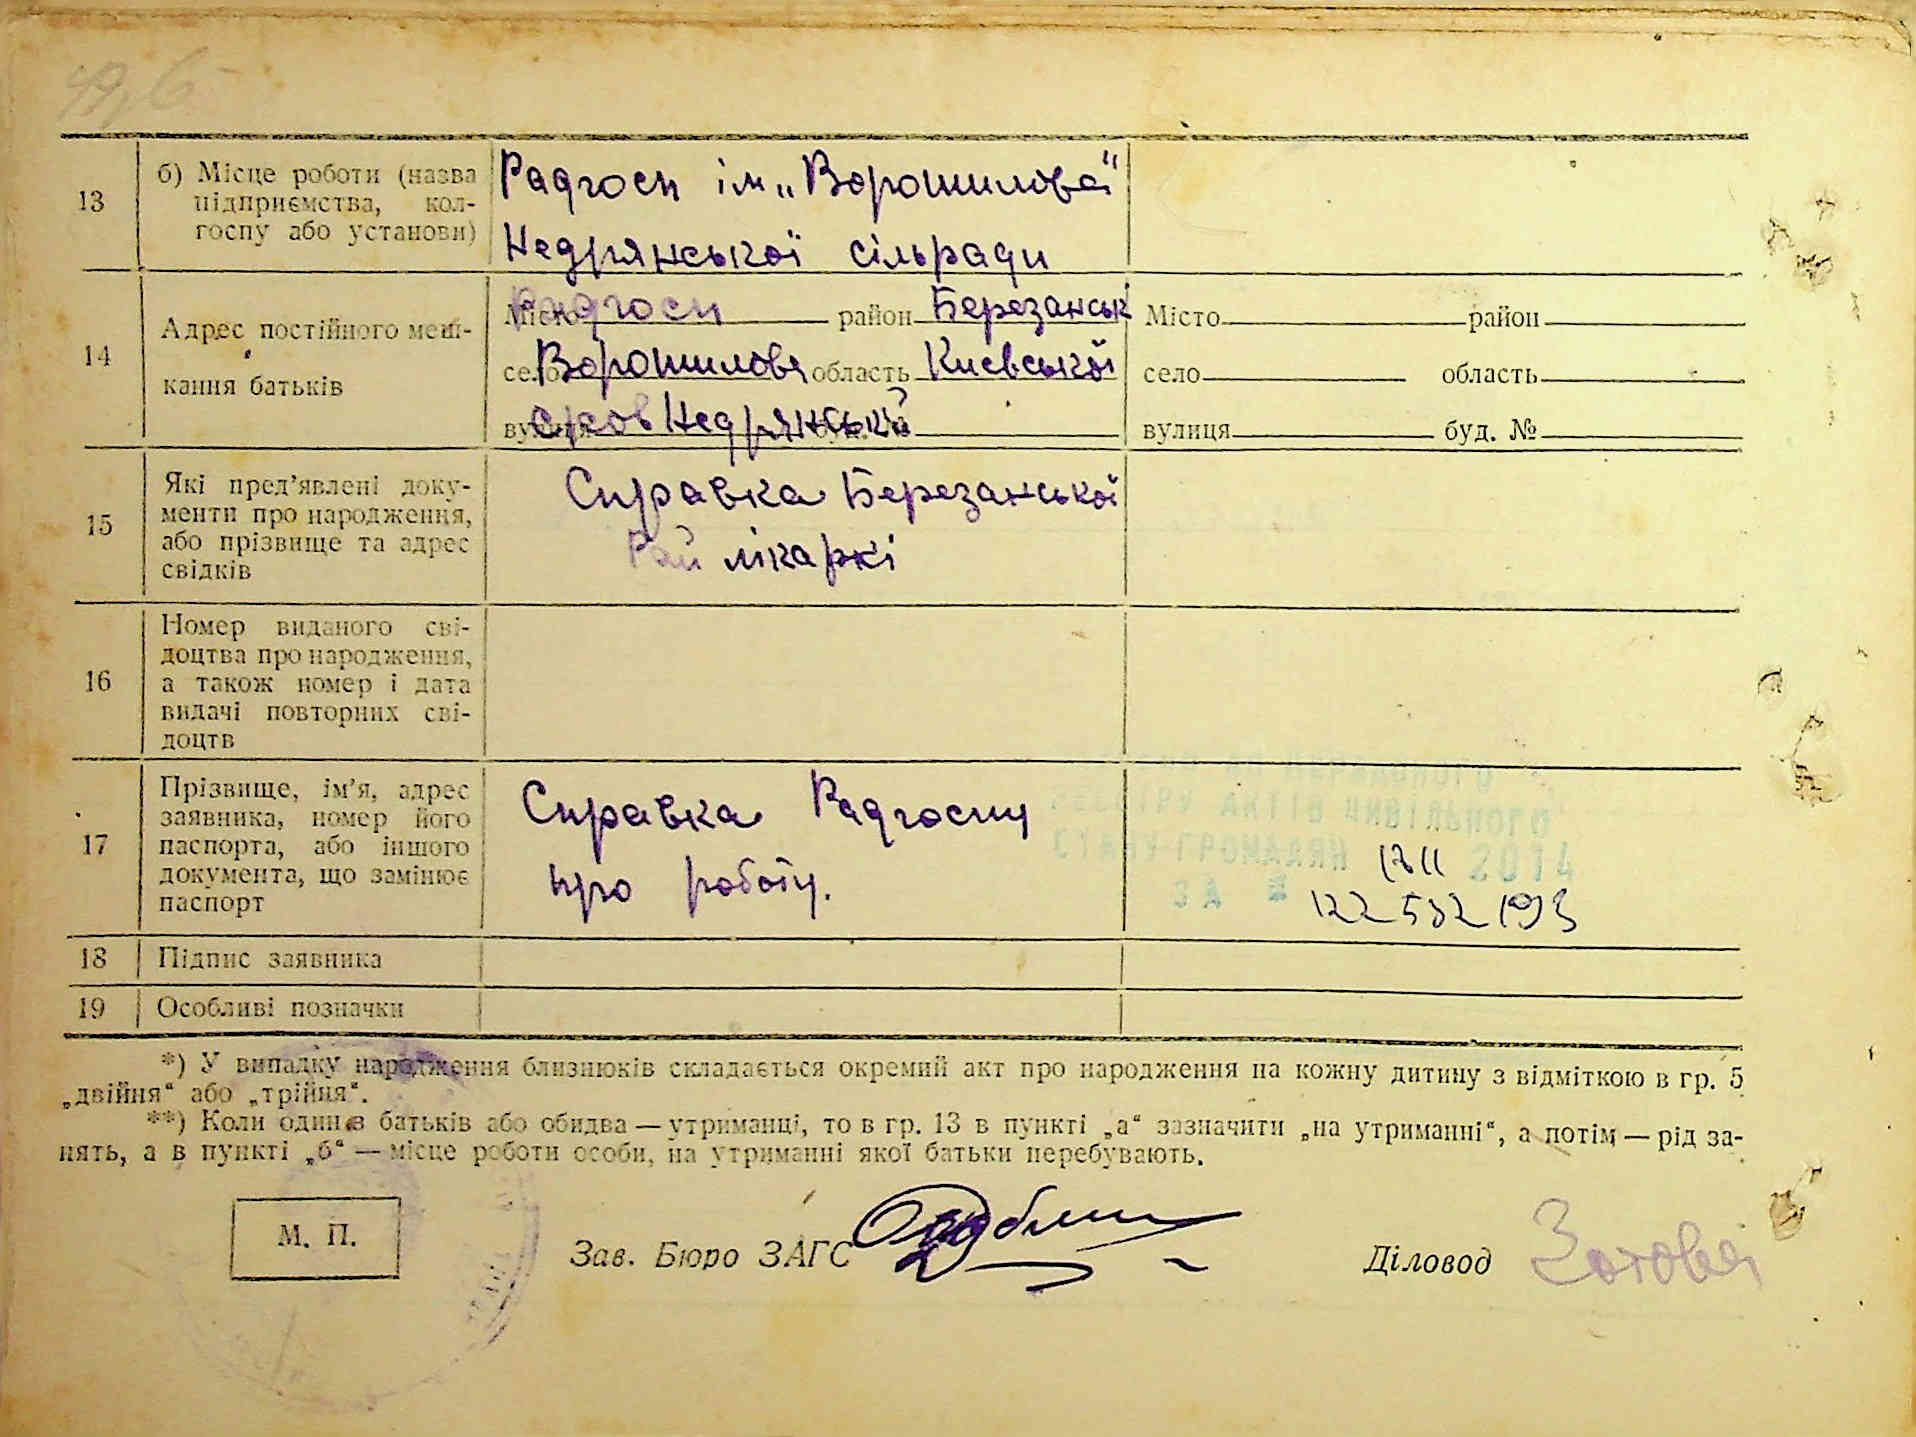 13
б) Місце роботи (назва
підприємства, кол-
госпу або установи)
Радгосп ім „Ворошилова"
Недрянської сільради
14
Адрес постійного меш-
кання батьків
Місто Радгосп район Березанськ
село Ворошилова область Киевської
вулиця Недрянській
Місто район
село область
вулиця буд. №
15
Які пред'явлені доку-
менти про народження,
або прізвище та адрес
свідків
Справка Березанської
Рай лікаркі
16
Номер виданого сві-
доцтва про народження,
а також номер і дата
видачі повторних сві-
доцтв
17
Прізвище, ім'я, адрес
заявника, номер його
паспорта, або іншого
документа, що замінює
паспорт
Справка Радгоспу
про роботу.
ДЕРЖАВНОГО
РЕЄСТРУ АКТІВ ЦИВІЛЬНОГО
СТАНУ ГРОМАДЯН 2014
ЗА №
18
Підпис заявника
19
Особливі позначки
*) У випадку народження близнюків складається окремий акт про народження на кожну дитину з відміткою в гр. 5
„двійня“ або „трійня“.
**) Коли один з батьків або обидва — утриманці, то в гр. 13 в пункті „а“ зазначити „на утриманні“, а потім — рід за-
нять, а в пункті „б“ — місце роботи особи, на утриманні якої батьки перебувають.
М. П.
Зав. Бюро ЗАГС
Діловод Зотова